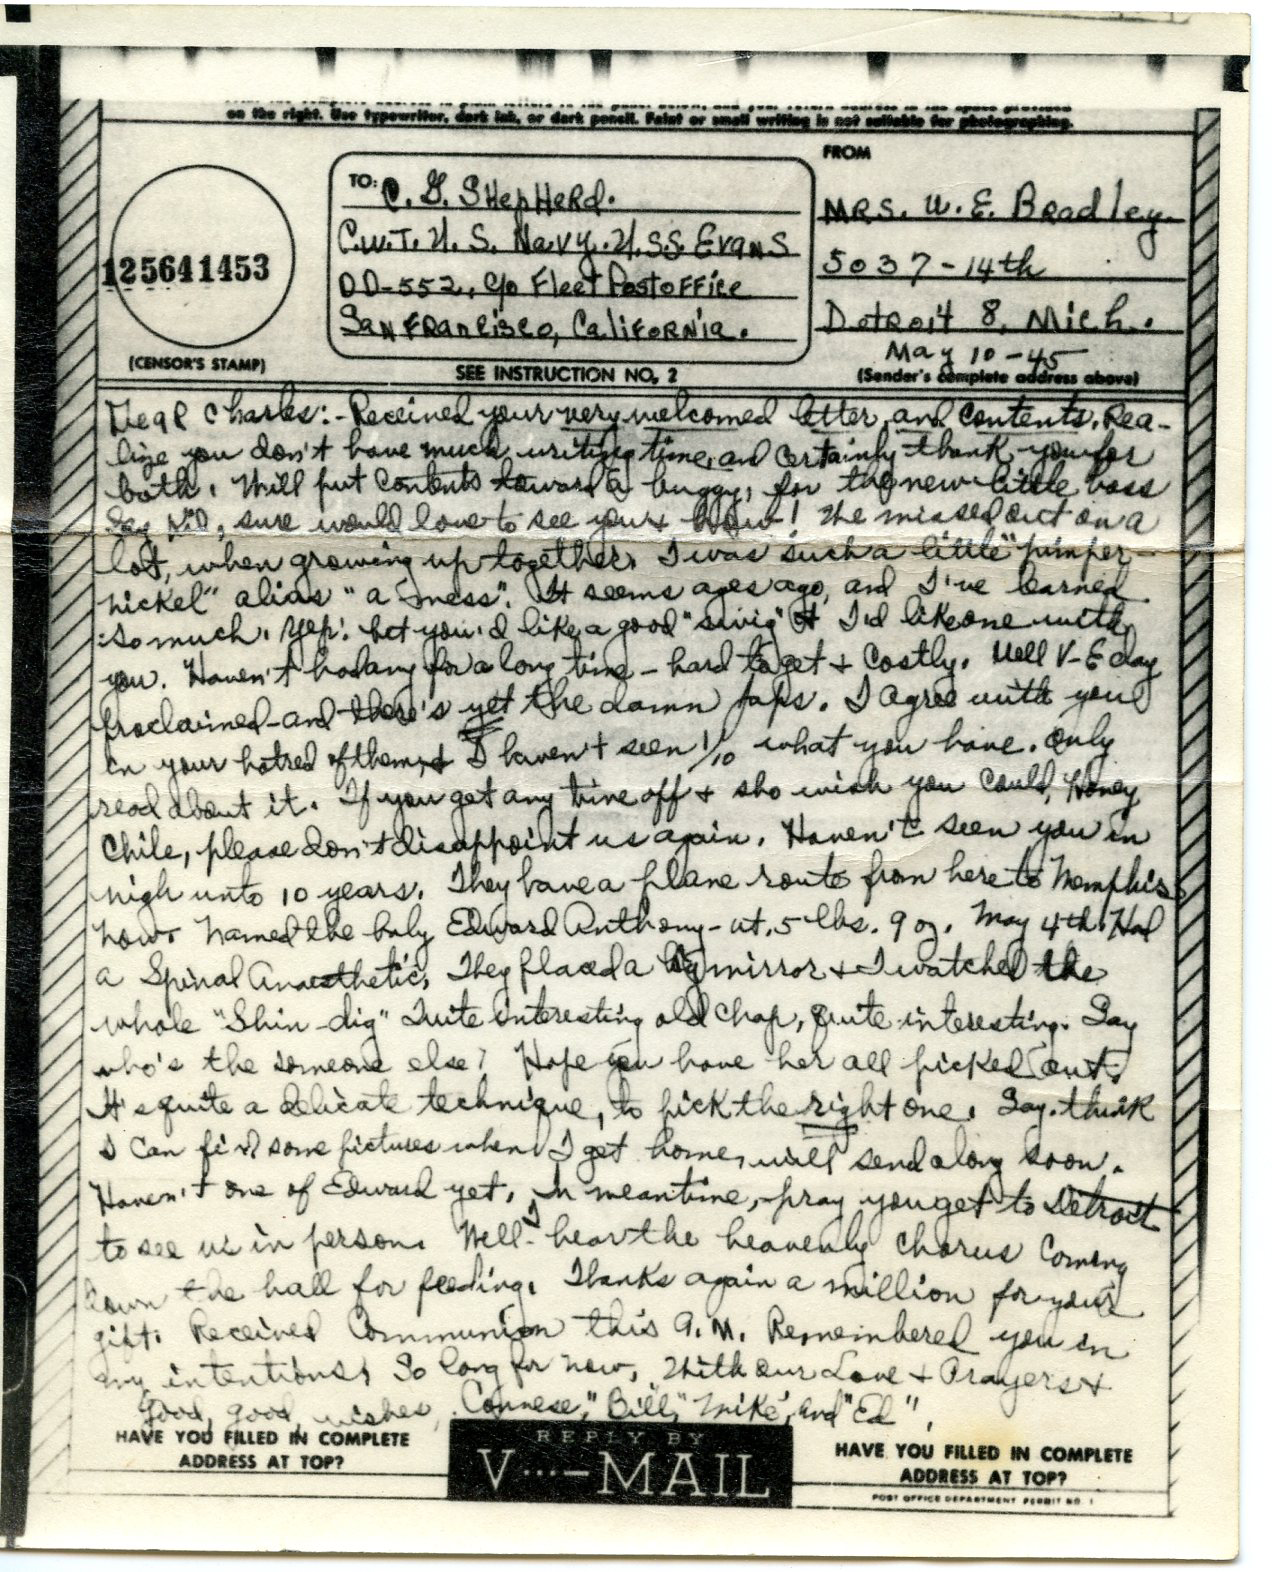 on the right. Use typewriter, dark ink, or dark pencil. Faint or small writing is not suitable for photographing.
125641453
(CENSOR'S STAMP)
TO: C. G. SHepHeRd.
C.W.T. U. S. Navy. U.S.S. Evans
DD-552, c/o Fleet Postoffice
San Francisco, California.
SEE INSTRUCTION NO. 2
FROM
MRS. W. E. Bradley
5037-14th
Detroit 8, Mich.
May 10-45
(Sender's complete address above)
Dear Charles:- Received your very welcomed letter, and contents. Rea-
lize you don't have much writing time, and certainly thank you for
both. Will put contents toward a buggy, for the new little boss
Say Kid, sure would love to see you & how! We missed out on a
lot, when growing up together. I was such a little "pimper-
nickel" alias "a mess". It seems ages ago, and I've learned
so much. Yep! bet you'd like a good "swig" & I'd like one with
you. Haven't had any for a long time - hard to get & costly. Well V-E day
proclaimed - and there's yet the damn Japs. I agree with you
in your hatred of them, & I haven't seen 1/10 what you have. Only
read about it. If you get any time off & sho wish you could, Honey
Chile, please don't disappoint us again. Haven't seen you in
nigh unto 10 years. They have a plane route from here to Memphis
now. Named the baby Edward Anthony - wt. 5 lbs. 9 oz. May 4th. Had
a Spinal Anaesthetic. They placed a big mirror & I watched the
whole "Shin-dig" Quite interesting old chap, quite interesting. Say
who's the someone else? Hope you have her all picked out.
It's quite a delicate technique, to pick the right one. Say. think
I can find some pictures when I get home, will send along soon.
Haven't one of Edward yet. In meantime, - pray you get to Detroit
to see us in person. Well - I hear the heavenly chorus coming
down the hall for feeding. Thanks again a million for your
gift. Received Communion this A.M. Remembered you in
my intentions. So long for now, With our Love & Prayers &
Good, good, wishes, "Bill," "Mike", and "Ed".
HAVE YOU FILLED IN COMPLETE
ADDRESS AT TOP?
REPLY BY
V···—MAIL
HAVE YOU FILLED IN COMPLETE
ADDRESS AT TOP?
POST OFFICE DEPARTMENT PERMIT NO. 1